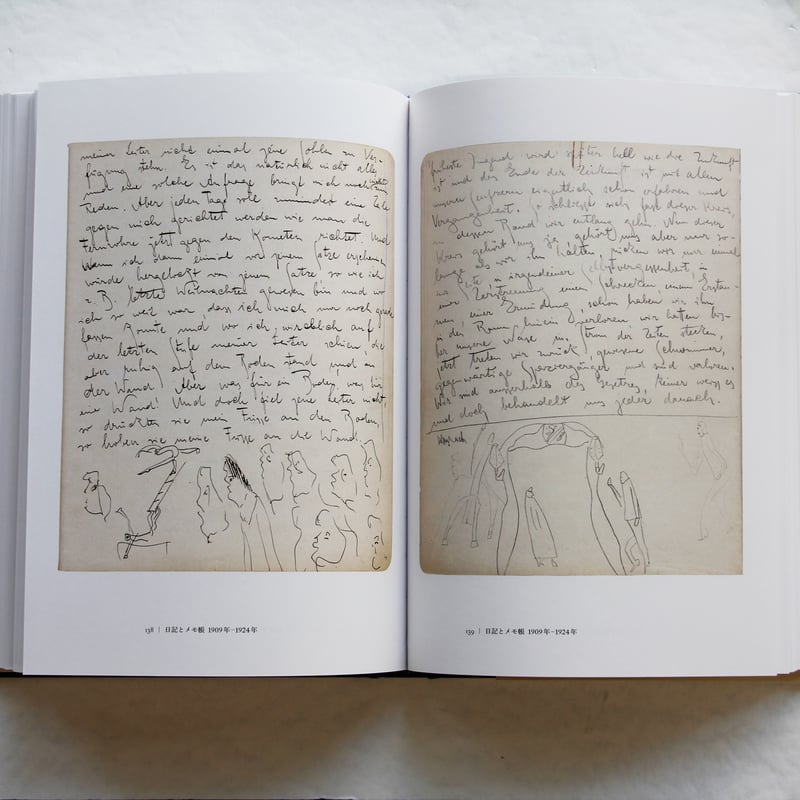 meiner Leiter nicht einmal jene Sohlen zu Ver-
fügung stehn. Es ist das natürlich nicht alles
und eine solche Anfrage bringt mich noch nicht zum
Reden. Aber jeden Tag soll zumindest eine Zeile
gegen mich gerichtet werden wie man die
Fernrohre jetzt gegen den Kometen richtet. Und
wenn ich dann einmal vor jenem Satze erscheinen
würde hergelockt von jenem Satze so wie ich
z. B. letzte Weihnachten gewesen bin und wo
ich so weit war dass ich mich nur noch gerade
fassen konnte und wo ich wirklich auf
der letzten Stufe meiner Leiter schien die
aber ruhig auf dem Boden stand und an
der Wand. Aber was für ein Boden, was für
eine Wand! Und doch fiel jene Leiter nicht,
so drückten sie meine Füsse an den Boden,
so hoben sie meine Füsse an die Wand.
138 | 日記とメモ帳 1909年–1924年
früheste Jugend wird später hell wie die Zukunft
ist und das Ende der Zukunft ist mit allen
unsern Seufzern eigentlich schon erfahren und
Vergangenheit. So schliesst sich fast dieser Kreis,
an dessen Rand wir entlang gehn. Nun dieser
Kreis gehört uns ja, gehört uns aber nur so-
lange als wir ihn halten, rücken wir nur einmal
zur Seite in irgendeiner Selbstvergessenheit, in
einer Zerstreuung einem Schrecken einem Erstau-
nen einer Ermüdung, schon haben wir ihn
in den Raum hinein verloren, wir hatten bis-
her unsere Nase im Strom der Zeiten stecken,
jetzt treten wir zurück, gewesene Schwimmer,
gegenwärtige Spaziergänger und sind verloren.
Wir sind ausserhalb des Gesetzes, keiner weiss es
und doch behandelt uns jeder danach.
139 | 日記とメモ帳 1909年–1924年